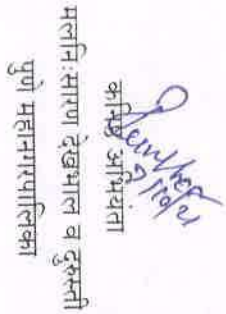 7/10/21
कनिष्ठ अभियंता
मलनि:सारण देखभाल व दुरुस्ती
पुणे महानगरपालिका